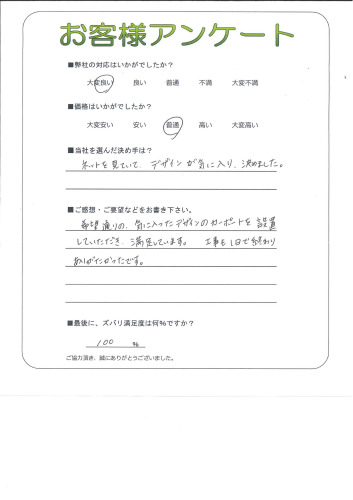 お客様アンケート
■弊社の対応はいかがでしたか?
大変良い 良い 普通 不満 大変不満
■価格はいかがでしたか?
大変安い 安い 普通 高い 大変高い
■当社を選んだ決め手は?
ネットを見ていて、デザインが気に入り、決めました。
■ご感想・ご要望などをお書き下さい。
希望通りの、気に入ったデザインのカーポートを設置
していただき、満足しています。 工事も1日で終わり
ありがたかったです。
■最後に、ズバリ満足度は何%ですか?
100 %
ご協力頂き、誠にありがとうございました。